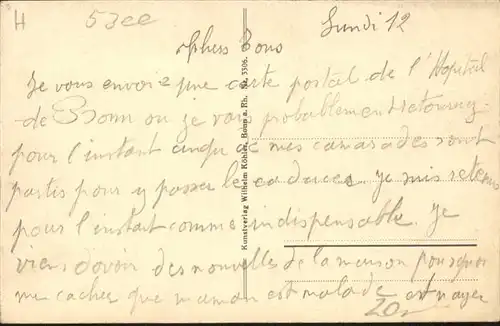 H 53ee Lundi 12
Chers Tous
Je vous envoie une carte postal de l'Hopital
de Bonn ou je vais probablement retourner
pour l'instant cinq de mes camarades sont
partis pour y passer le je suis retenu
pour l'instant comme indispensable. Je
viens d'avoir des nouvelles de la maison pourquoi
me cacher que maman est malade et ayer
20
Kunstverlag Wilhelm Köhler, Bonn a. Rh. Nr. 3306.